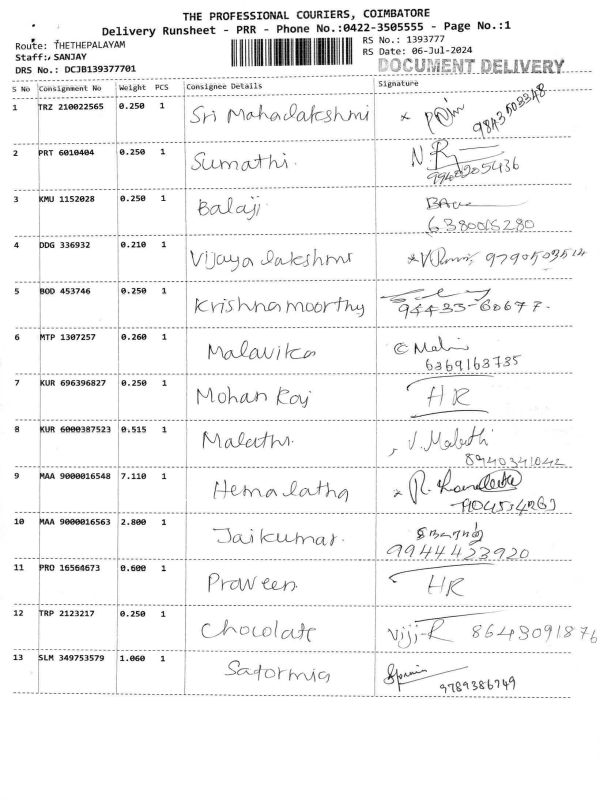 THE PROFESSIONAL COURIERS, COIMBATORE
Delivery Runsheet - PRR - Phone No.:0422-3505555 - Page No.:1
Route: THETHEPALAYAM
RS No.: 1393777
Staff: SANJAY
RS Date: 06-Jul-2024
DRS No.: DCJB139377701
DOCUMENT DELIVERY
S No Consignment No Weight PCS Consignee Details Signature
1 TRZ 210022565 0.250 1 Sri Mahalakshmi
9843503348
2 PRT 6010404 0.250 1 Sumathi. N R
3 KMU 1152028 0.250 1 Balaji
6380015280
4 DDG 336932 0.210 1 Vijaya lakshmi 9790503514
5 BOD 453747 0.250 1 Krishnamoorthy
94433-60677.
6 MTP 1307257 0.260 1 Malavika
6369163735
7 KUR 696396827 0.250 1 Mohan Raj HR
8 KUR 6000387523 0.515 1 Malathi. V. Malathi
8940341042
9 MAA 9000016548 7.110 1 Hemalatha
10 MAA 9000016563 2.800 1 Jaikumar.
9944423920
11 PRO 16564673 0.600 1 Praveen HR
12 TRP 2123217 0.250 1 Chocolate Viji-R 8643091876
13 SLM 349753579 1.060 1 Satormia
9789386749